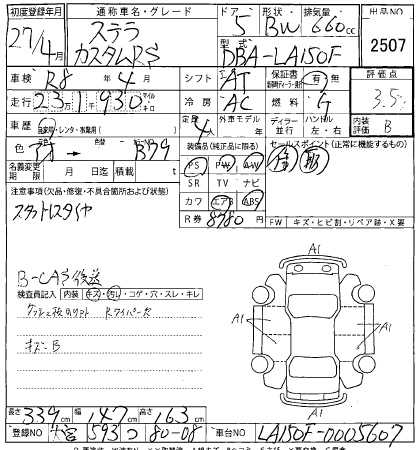 初度登録年月 通称車名・グレード ドア 形状 排気量 出品NO
27/4月 ステラ カスタムRS 5 BW 660cc 2507
型式 DBA-LA150F 評価点
車検 R8年4月 シフト AT 保証書 有・無 3.5
走行 23万1千930 マイル キロ 冷房 AC 燃料 G 内装評価 B
車歴 自家用・レンタ・水業用( ) 定員 4人 外車モデル 年 ディーラー 並行 ハンドル 左・右
色 アオ→ 色替 B79 装備品(純正品に限る) セールスポイント(正常に機能するもの)
名義変更期限 月 日迄 積載量 t PS PW AW
注意事項(欠品・修復・不具合箇所および状態) SR TV ナビ
スタットレスタイヤ カワ エアB ABS
R券 8780円 FW キズ・ヒビ割・リペア跡・X要
B-CAS後送
検査員記入 内装 キズ・汚レ・コゲ・穴・スレ・キレ
キズ-B
A1
A1
A1
A1
長さ339cm 幅147cm 高さ163cm
登録NO 大宮 593 つ 80-08 車台NO LA150F-0005607